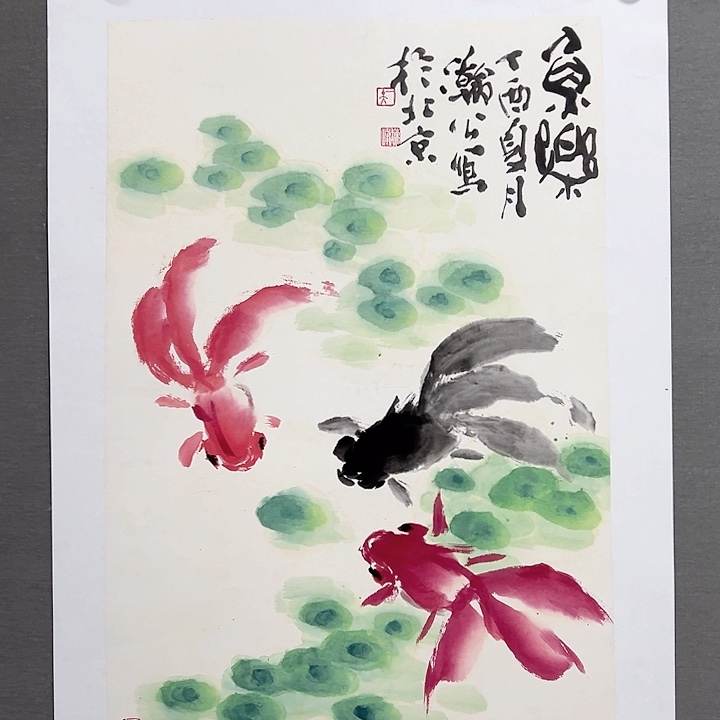 魚樂
丁酉夏月
瀚公寫
於北京